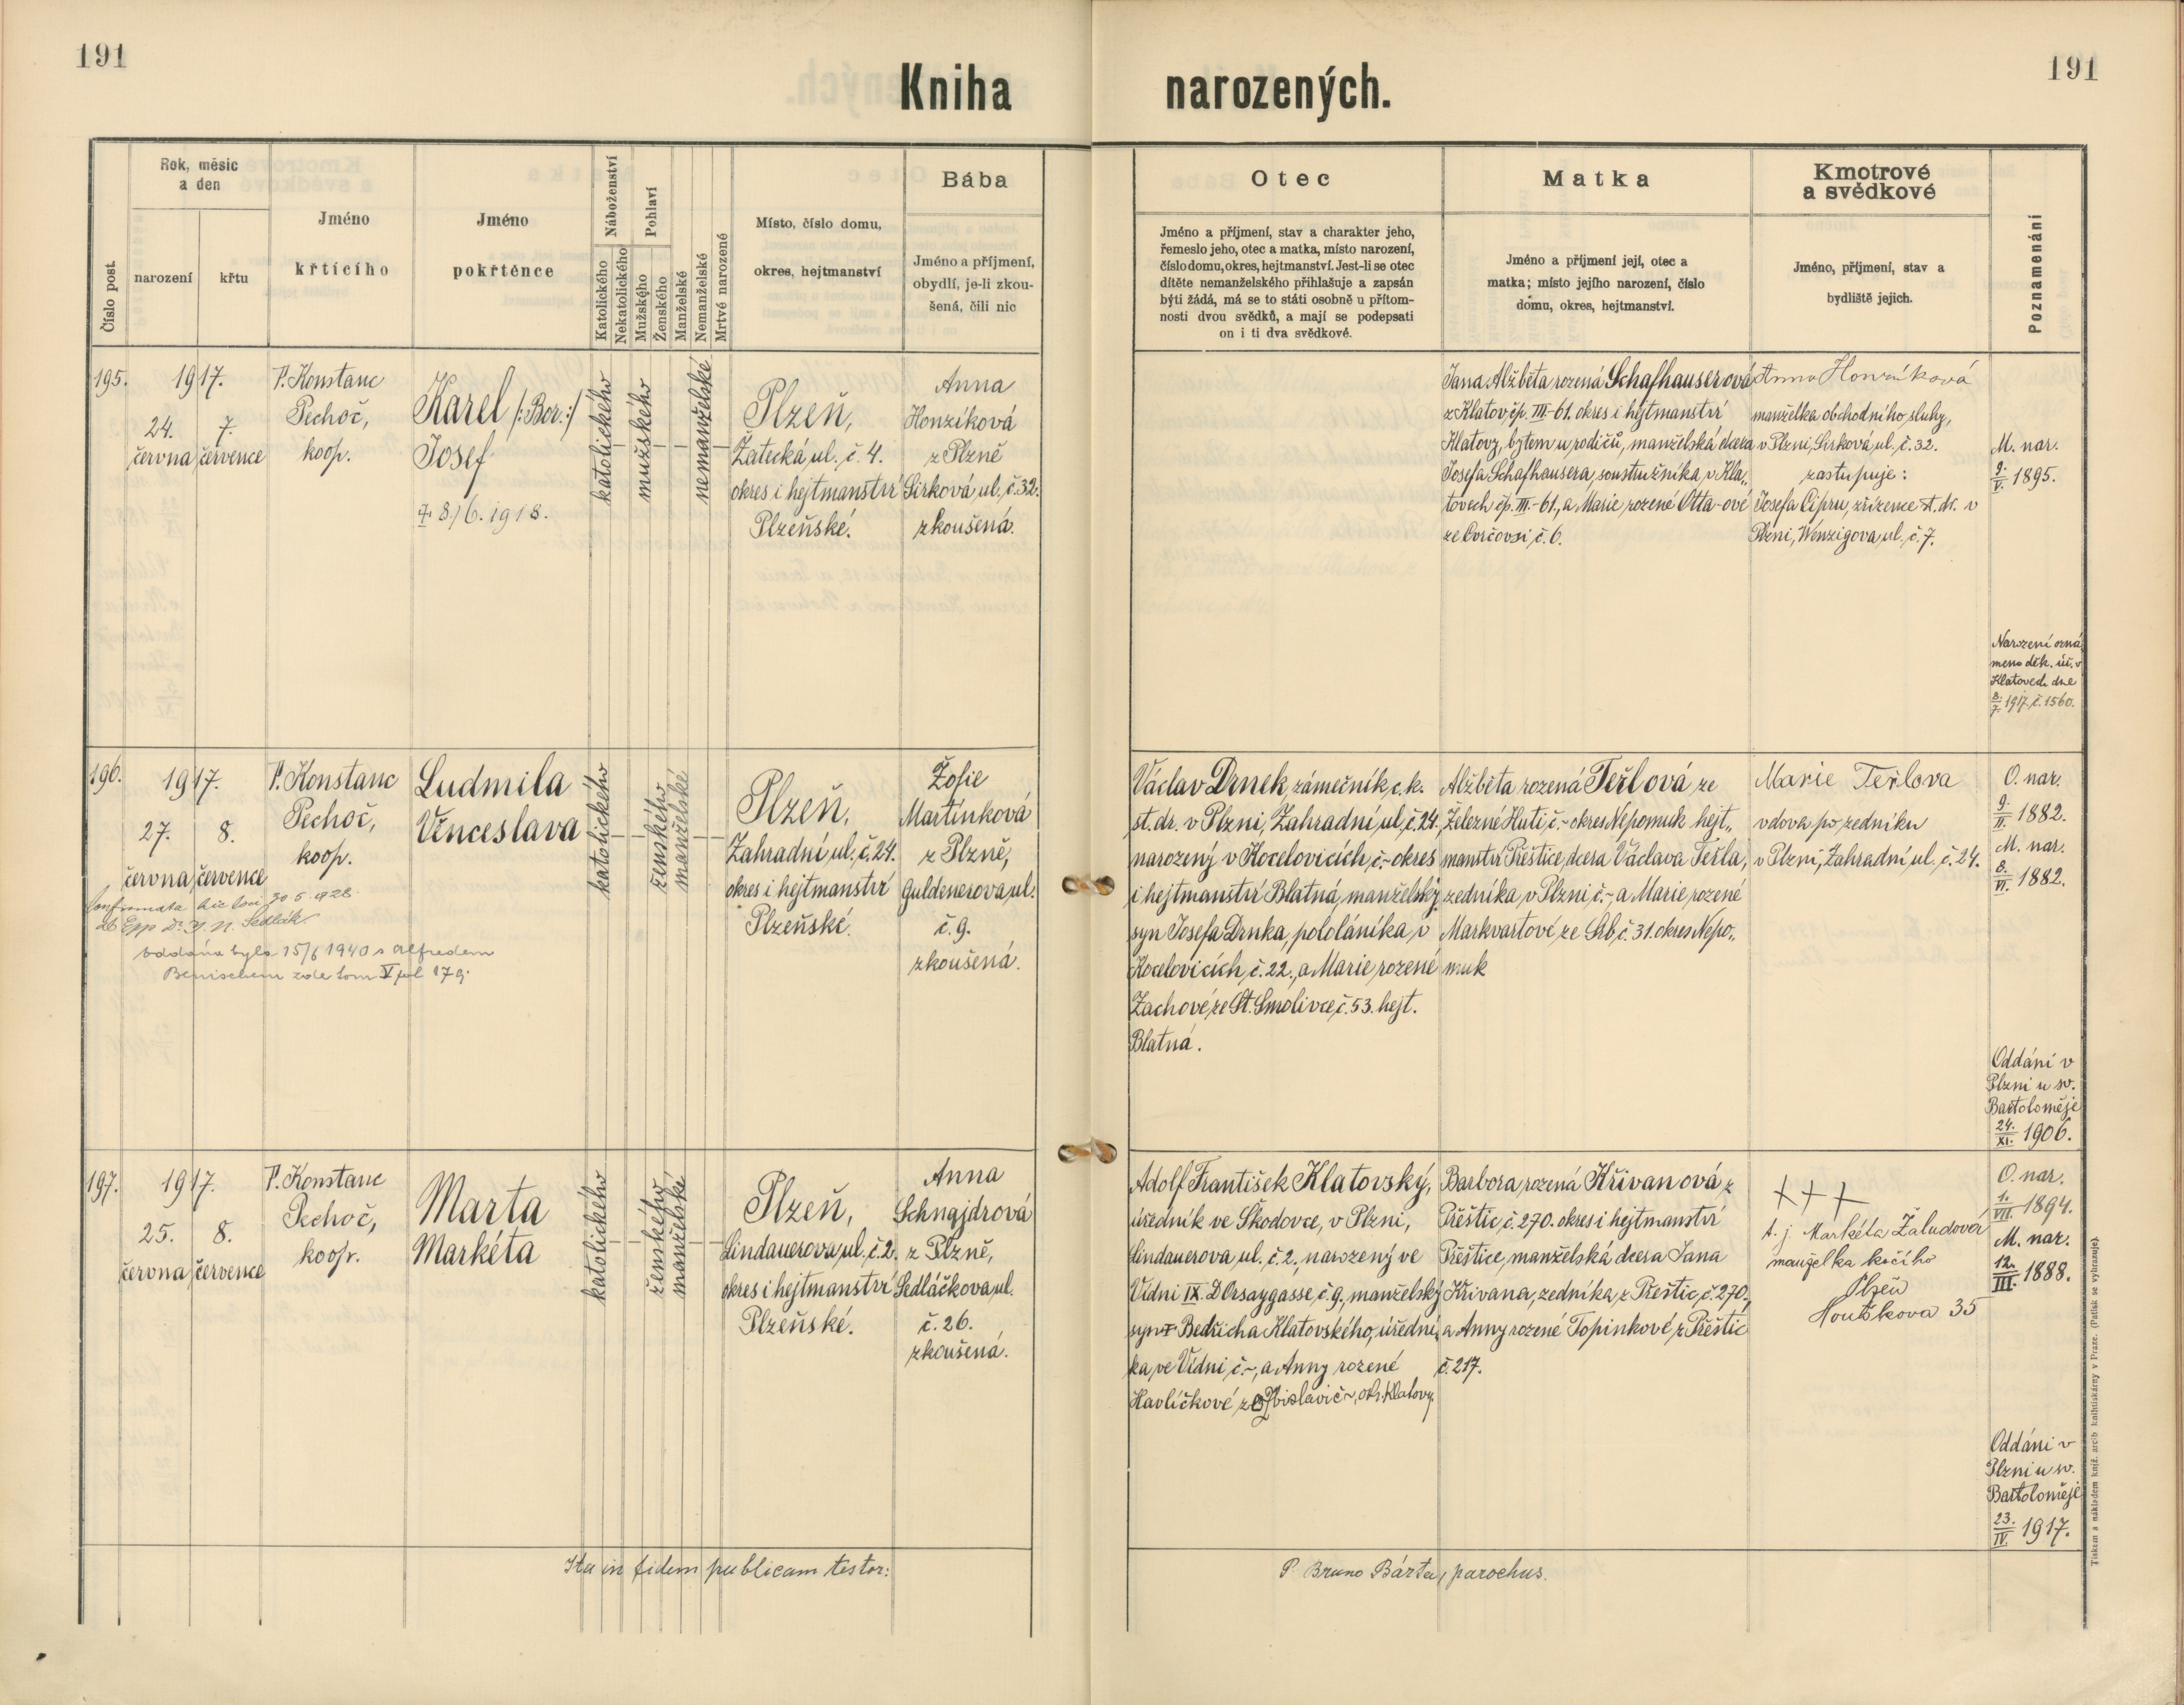 191
191
Kniha narozených.
Číslo post.
Rok, měsíc
a den
narození
křtu
Jméno
křtícího
Jméno
pokřtěnce
Náboženství
Katolického
Nekatolického
Pohlaví
Mužského
Ženského
Manželské
Nemanželské
Mrtvé narozené
Místo, číslo domu,
okres, hejtmanství
Bába
Jméno a příjmení,
obydlí, je-li zkou-
šená, čili nic
Otec
Jméno a příjmení, stav a charakter jeho,
řemeslo jeho, otec a matka, místo narození,
číslo domu, okres, hejtmanství. Jest-li se otec
dítěte nemanželského přihlašuje a zapsán
býti žádá, má se to státi osobně u přítom-
nosti dvou svědků, a mají se podepsati
on i ti dva svědkové.
Matka
Jméno a příjmení její, otec a
matka; místo jejího narození, číslo
domu, okres, hejtmanství.
Kmotrové
a svědkové
Jméno, příjmení, stav a
bydliště jejich.
Poznamenání
195.
1917.
24.
června
7.
července
P. Konstanc
Pechoč,
koop.
Karel /:Bor.:/
Josef
† 8./6. 1918.
katolického
mužského
nemanželské
Plzeň,
Žatecká ul. č. 4.
okres i hejtmanství
Plzeňské.
Anna
Honzíková
z Plzně
Sirková ul. č. 32.
zkoušená.
Jana Alžběta rozená Schafhauserová
z Klatov čp. III-61. okres i hejtmanství
Klatovy, bytem u rodičů, manželská dcera
Josefa Schafhausera, soustružníka v Kla„
tovech čp. III.-61., a Marie rozené Otta-ové
ze č. 6.
Anna Honzíková
manželka obchodního sluhy,
v Plzni, Sirková ul. č. 32.
zastupuje:
Josefa Cipru, zřízence st. dr. v
Plzni, Wenzigova ul. č. 7.
M. nar.
9./V. 1895.
Narození ozná
meno děk. úř. v
Klatovech dne
8./7. 1917, č. 1560.
196.
1917.
27.
června
8.
července
P. Konstanc
Pechoč,
koop.
Ludmila
Věnceslava
Confirmata hic loci 30 5. 1928
ab Epp Dr. Sedlák
oddána byla 15/6 1940 s Alfredem
Benischem zde tom V fol 179.
katolického
ženského
manželské
Plzeň,
Zahradní ul. č. 24.
okres i hejtmanství
Plzeňské.
Žofie
Martínková
z Plzně,
Guldenerova ul.
č. 9.
zkoušená.
Václav Drnek, zámečník c. k.
st. dr. v Plzni, Zahradní ul. č. 24.,
narozený v Kocelovicích, č.~ okres
i hejtmanství Blatná, manželský
syn Josefa Drnka, pololáníka v
Kocelovicích, č. 22., a Marie rozené
Zachové ze St. Smolivce, č. 53. hejt.
Blatná.
Alžběta rozená Teřlová ze
Železné Huti č.~ okres Nepomuk hejt„
manství Přeštice, dcera Václava Teřla,
zedníka v Plzni č.~, a Marie rozené
Markvartové ze č. 31. okres Nepo„
muk
Marie Teřlova
vdova po zedníku
v Plzni, Zahradní ul. č. 24.
O. nar.
9./II. 1882.
M. nar.
8./VI. 1882.
Oddáni v
Plzni u sv.
Bartoloměje
24./XI. 1906.
197.
1917.
25.
června
8.
července
P. Konstanc
Pechoč,
koop.
Marta
Markéta
katolického
ženského
manželské
Plzeň,
Lindauerova ul. č. 2.
okres i hejtmanství
Plzeňské.
Anna
Schnajdrová
z Plzně,
Sedláčkova ul.
č. 26.
zkoušená.
Adolf František Klatovský,
úředník ve Škodovce, v Plzni,
Lindauerova ul. č. 2., narozený ve
Vídni IX. D'Orsaygasse, č. 9., manželský
syn Bedřicha Klatovského, úřední„
ka, ve Vídni č.~, a Anny rozené
Havlíčkové z č.~, okr. Klatovy.
Barbora, rozená Křivanová z
Přeštic č. 270. okres i hejtmanství
Přeštice, manželská dcera Jana
Křivana, zedníka, z Přeštic, č. 270.,
a Anny rozené Topinkové z Přeštic
č. 217.
+++
t. j. Markéta Žaludová
manželka kočího
Plzeň
Houškova 35
O. nar.
1./VII. 1894.
M. nar.
12./III. 1888.
Oddáni v
Plzni u sv.
Bartoloměje
23./IV. 1917.
Ita in fidem publicam testor:
P. Bruno Bárta, parochus.
Tiskem a nákladem kníž. arcib. knihtiskárny v Praze. (Patisk se vyhrazuje).